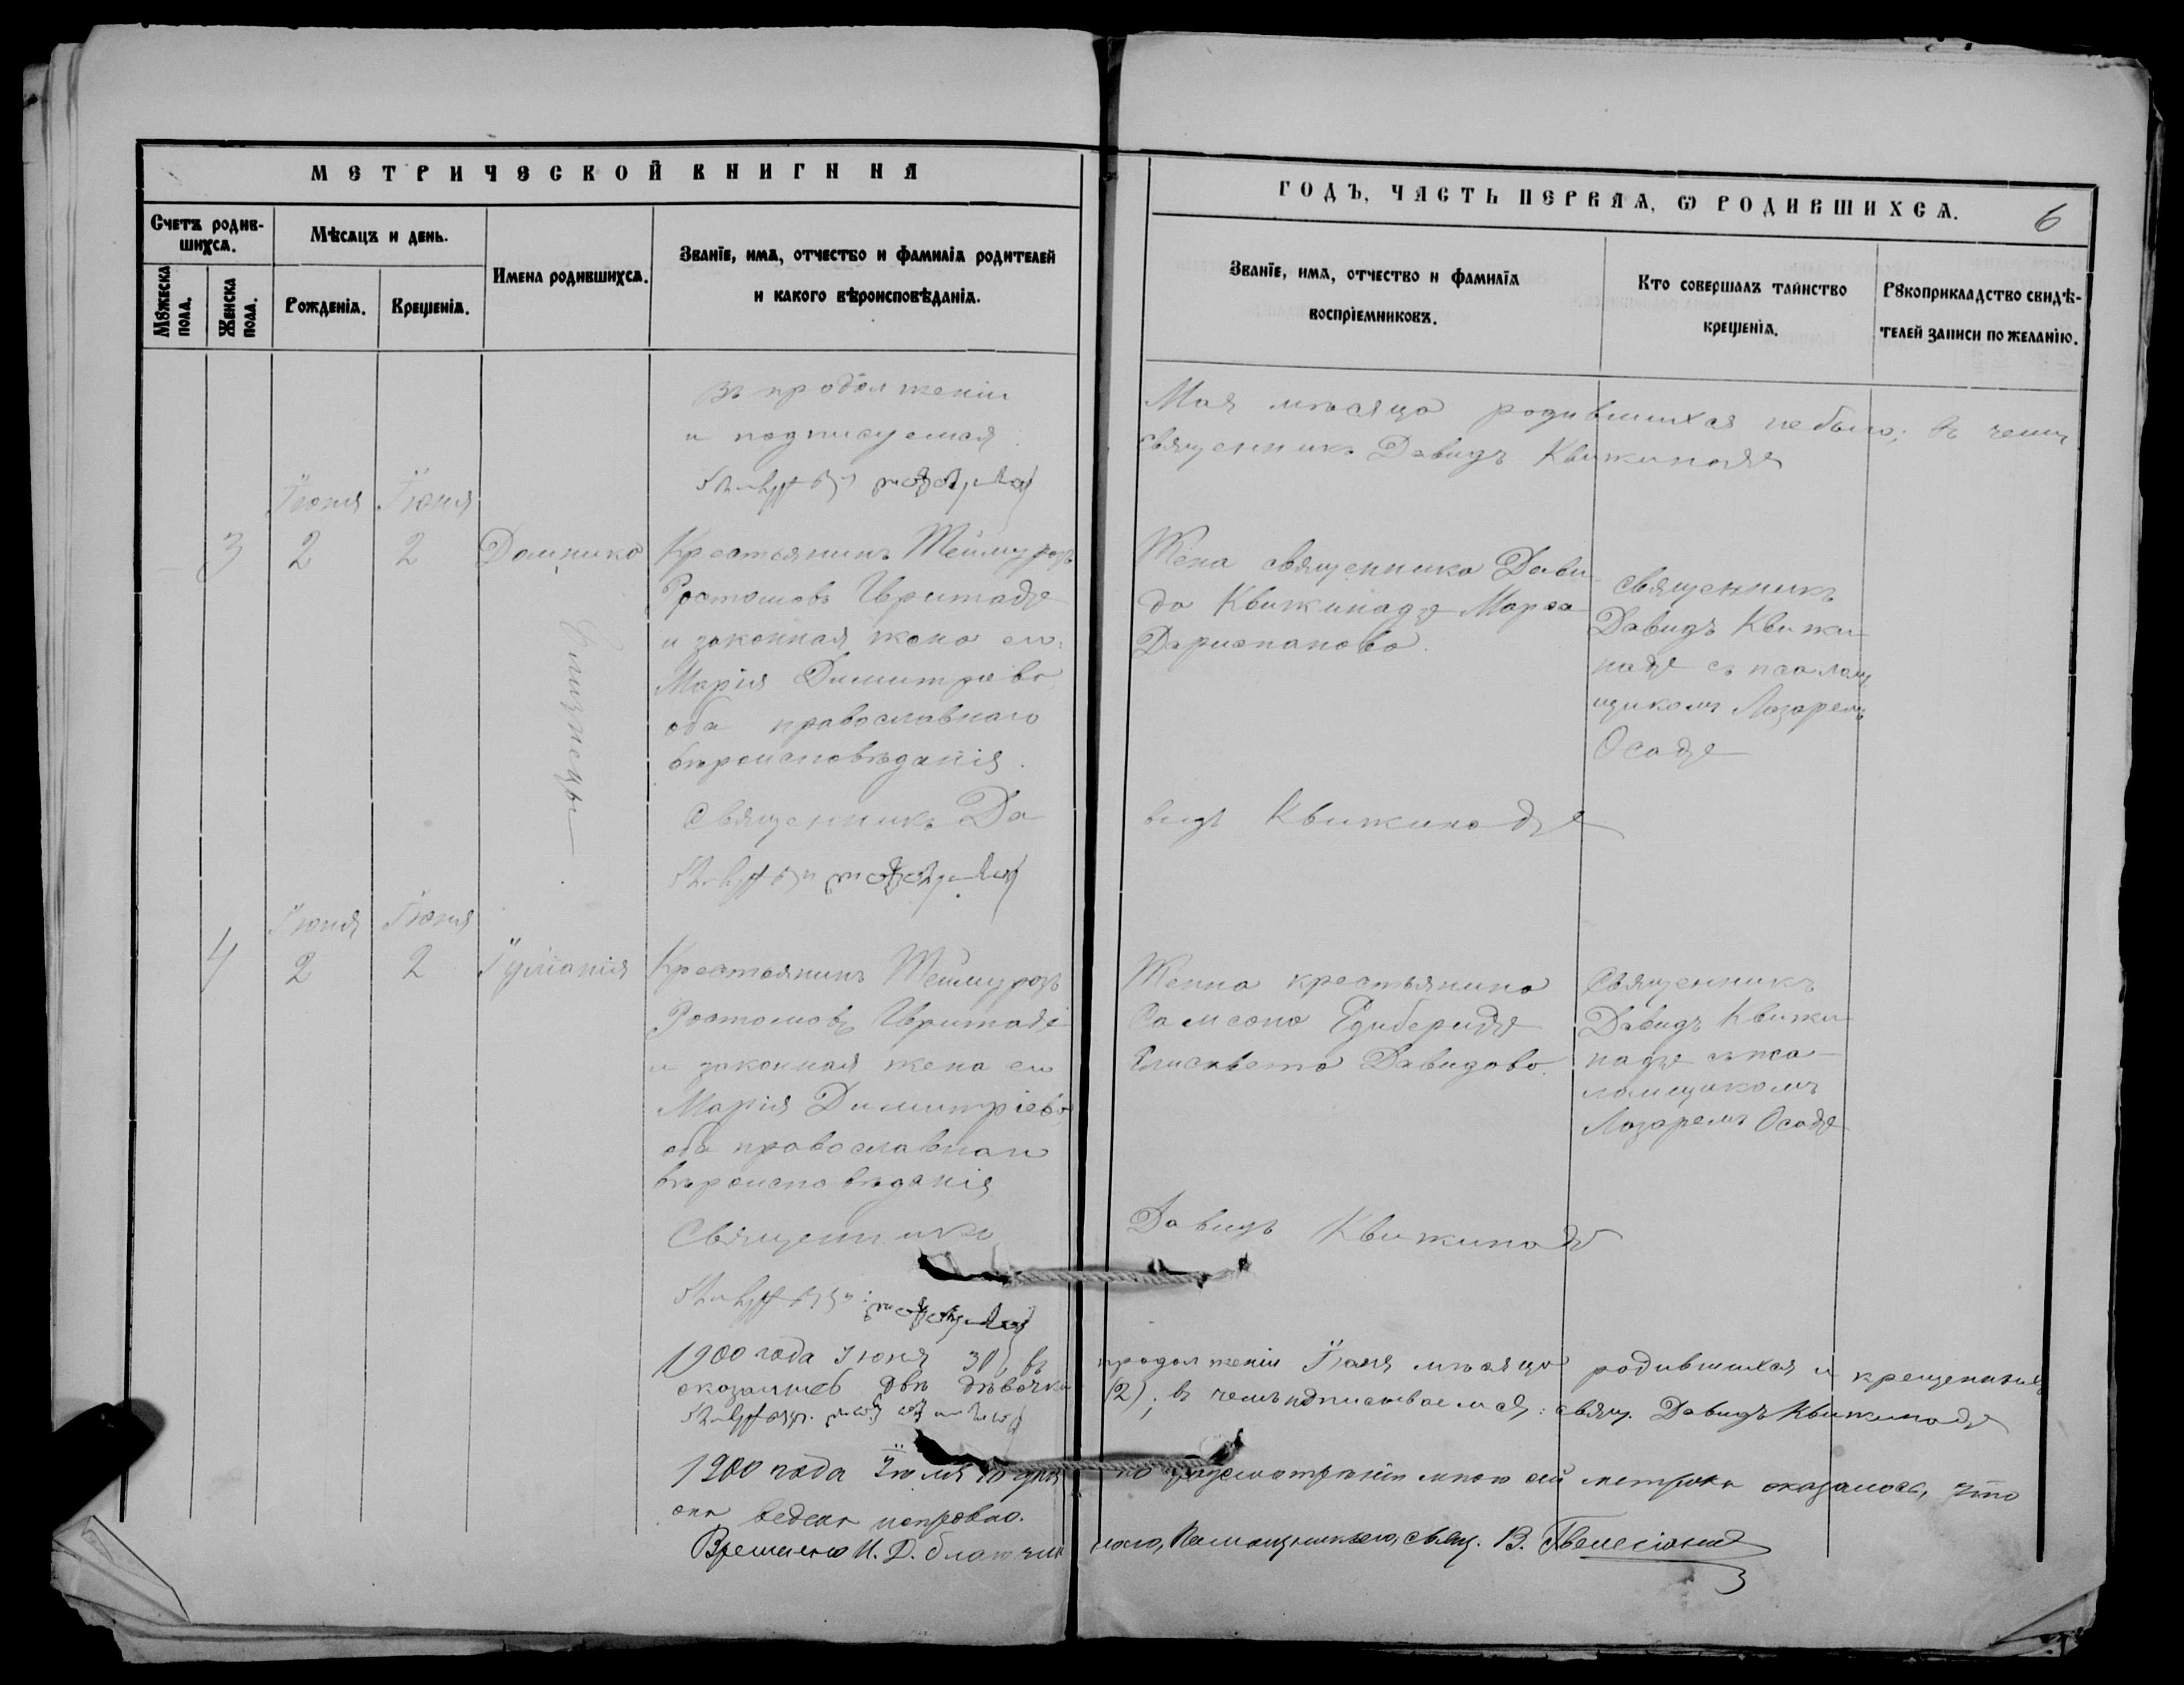 МЕТРИЧЕСКОЙ КНИГИ НА
ГОДЪ, ЧАСТЬ ПЕРВАЯ, Ѡ РОДИВШИХСЯ.
6
Счетъ родив-
шихся.
Мѣсяцъ и день.
Имена родившихся.
Званїе, имя, отчество и фамилїя родителей
и какого вѣроисповѣданїя.
Мужеска
пола.
Женска
пола.
Рожденїя.
Крещенїя.
Званїе, имя, отчество и фамилїя
воспрїемниковъ.
Кто совершалъ таинство
крещенїя.
Рукоприкладство свидѣ-
телей записи по желанїю.
въ продолженіи
Мая мѣсяца родившихся не было; въ чемъ
и подписуемся
священникъ Давидъ Квижинадзе
Іюня
Іюня
3
2
2
Домнико
Крестьянинъ Теймуразъ
Ростомовъ Цвритадзе
и законная жена его:
Марія Димитріева
оба православнаго
вѣроисповѣданія.
Близнецы
Жена священника Дави
да Квижинадзе Марѳа
Дариспанова.
Священникъ
Давидъ Квижи
надзе съ псалом
щикомъ Лазаремъ
Осадзе
Священникъ Да
видъ Квижинадзе
Іюня
Іюня
4
2
2
Іуліанія
Крестьянинъ Теймуразъ
Ростомовъ Цвритадзе
и законная жена его
Марія Димитріева,
оба православнаго
вѣроисповѣданія
Женна крестьянина
Самсона Едибериdзе
Елисавета Давидова.
Священникъ
Давидъ Квижи
надзе съ пса-
ломщикомъ
Лазаремъ Осадзе
Священникъ
Давидъ Квижинадзе
1900 года Іюня 30, въ
продолженіи Іюня мѣсяца родившихся и крещенныхъ
оказались двѣ дѣвочки
(2); въ чемъ подписываемся: свящ. Давидъ Квижинадзе
1900 года Іюля 10 дня
по разсмотрѣніи мною сей метрики оказалось, что
она ведена исправно.
Временно И. Д. благочин
наго, свящ. В.